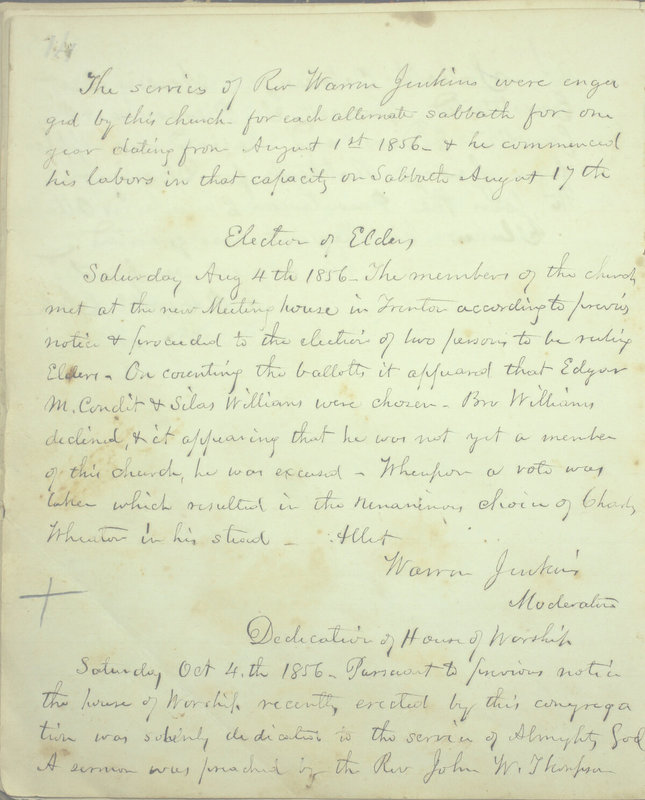 The services of Rev Warren Jenkins were enga
ged by this church for each alternate sabbath for one
year dating from August 1st 1856 - & he commenced
his labors in that capacity on Sabbath August 17th
Election of Elders
Saturday Aug 4th 1856 - The members of the church
met at the new Meeting house in Trenton according to previous
notice & proceeded to the election of two persons to be ruling
Elders - On counting the ballotts it appeared that Edgar
M. Condit & Silas Williams were chosen - Bro Williams
declined, & it appearing that he was not yet a member
of this church, he was excused - Whereupon a vote was
taken which resulted in the unanimous choice of Charles
Wheaton in his stead - Attest
Warren Jenkins
Moderator
Dedication of House of Worship
Saturday Oct 4th 1856 - Pursuant to previous notice
the house of Worship recently erected by this congrega
tion was solemnly dedicated to the service of Almighty God
A sermon was preached by the Rev John W. Thompson